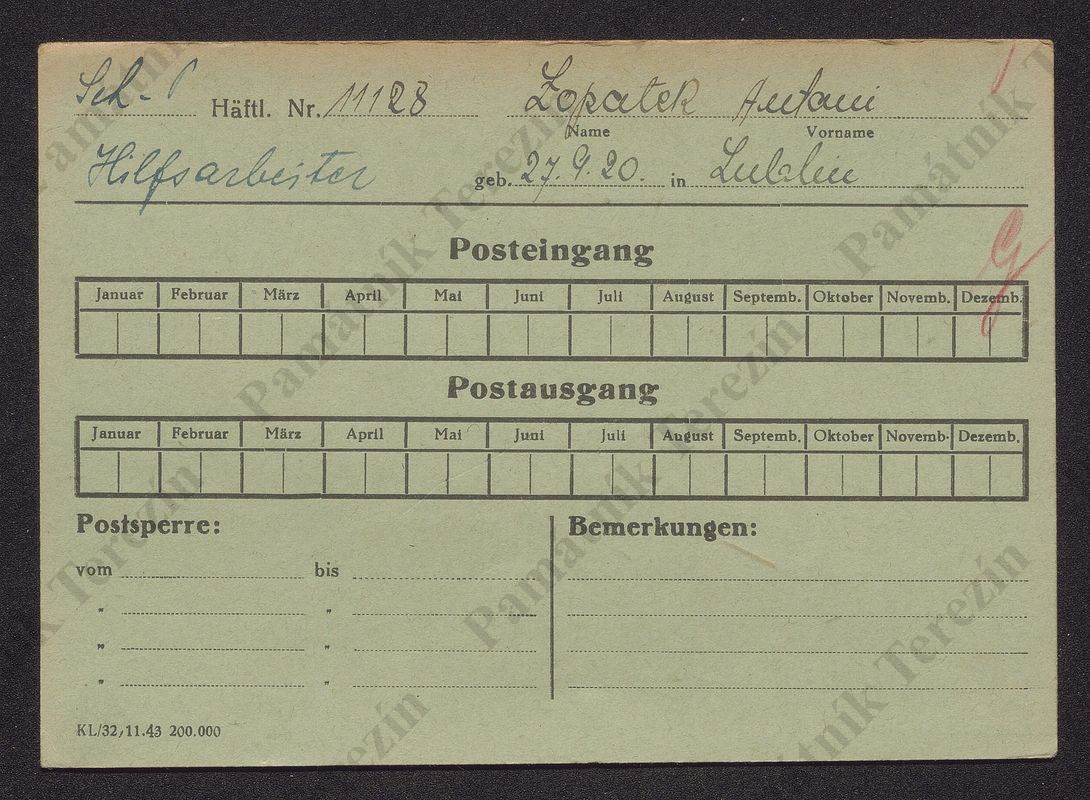 Sch. P Häftl. Nr. 11128 Lopatek Antoni
Name Vorname
Hilfsarbeiter geb. 27.9.20. in Lublin
Posteingang
Januar Februar März April Mai Juni Juli August Septemb. Oktober Novemb. Dezemb.
Postausgang
Januar Februar März April Mai Juni Juli August Septemb. Oktober Novemb. Dezemb.
Postsperre: Bemerkungen:
vom bis
" "
" "
" "
KL/32, 11.43 200.000
Památník Terezín
Památník Terezín
Památník Terezín
Památník Terezín